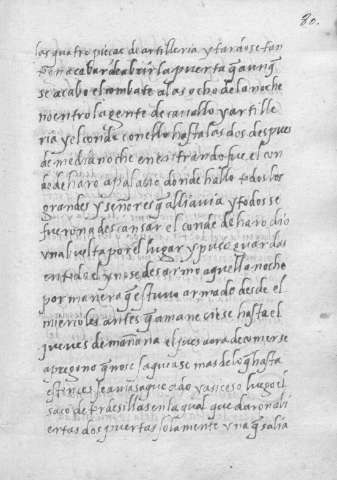 80.
las quatro pieças de artilleria y tardose tan
to en acabar de abrir la puerta q aunq
se acabo el combate a las ocho de la noche
no entro la gente de cavallo y artille
ria y el conde con ello hasta las dos despues
de media noche en entrando fue el con
de de haro a palacio donde hallo todos los
grandes y señores q alli avia y todos se
fueron a descansar el conde de haro dio
una buelta por el lugar y puso guardas
en todo el y no se desarmo aquella noche
por manera q estuvo armado desde el
miercoles antes q amaneciese hasta el
jueves de mañana el jueves a ora de comer se
apregono q no se saquease mas de lo q hasta
estonces se avia saqueado y asi ceso luego el
saco de tordesillas en la qual quedaron abi
ertas dos puertas solamente una q salia